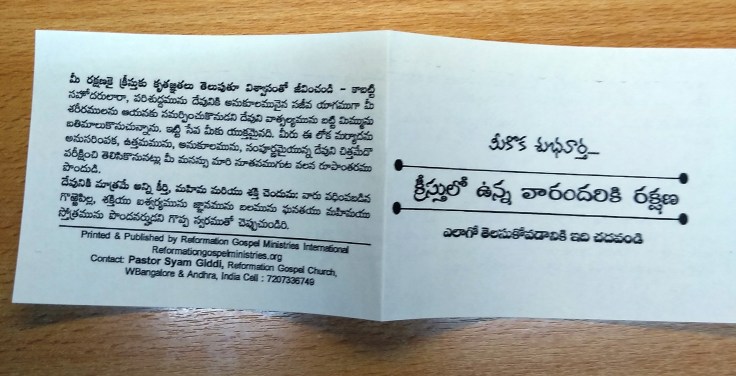 మీ రక్షణకై క్రీస్తుకు కృతజ్ఞతలు తెలుపుతూ విశ్వాసంతో జీవించండి - కాబట్టి
సహోదరులారా, పరిశుద్ధమును దేవునికి అనుకూలమునైన సజీవ యాగముగా మీ
శరీరములను ఆయనకు సమర్పించుకొనుడని దేవుని వాత్సల్యమును బట్టి మిమ్మును
బతిమాలుకొనుచున్నాను. ఇట్టి సేవ మీకు యుక్తమైనది. మీరు ఈ లోక మర్యాదను
అనుసరింపక, ఉత్తమమును, అనుకూలమును, సంపూర్ణమైయున్న దేవుని చిత్తమేదో
పరీక్షించి తెలిసికొనునట్లు మీ మనస్సు మారి నూతనమగుట వలన రూపాంతరము
పొందుడి.
దేవునికి మాత్రమే అన్ని కీర్తి, మహిమ మరియు శక్తి చెందును: వారు వధింపబడిన
గొఱ్ఱెపిల్ల, శక్తియు ఐశ్వర్యమును జ్ఞానమును బలమును ఘనతయు మహిమయు
స్తోత్రమును పొందనర్హుడని గొప్ప స్వరముతో చెప్పుచుండిరి.
Printed & Published by Reformation Gospel Ministries International
Reformationgospelministries.org
Contact: Pastor Syam Giddi, Reformation Gospel Church,
WBangalore & Andhra, India Cell : 7207336749
మీకొక శుభవార్త_
క్రీస్తులో ఉన్న వారందరికి రక్షణ
ఎలాగో తెలసుకోవడానికి ఇది చదవండి